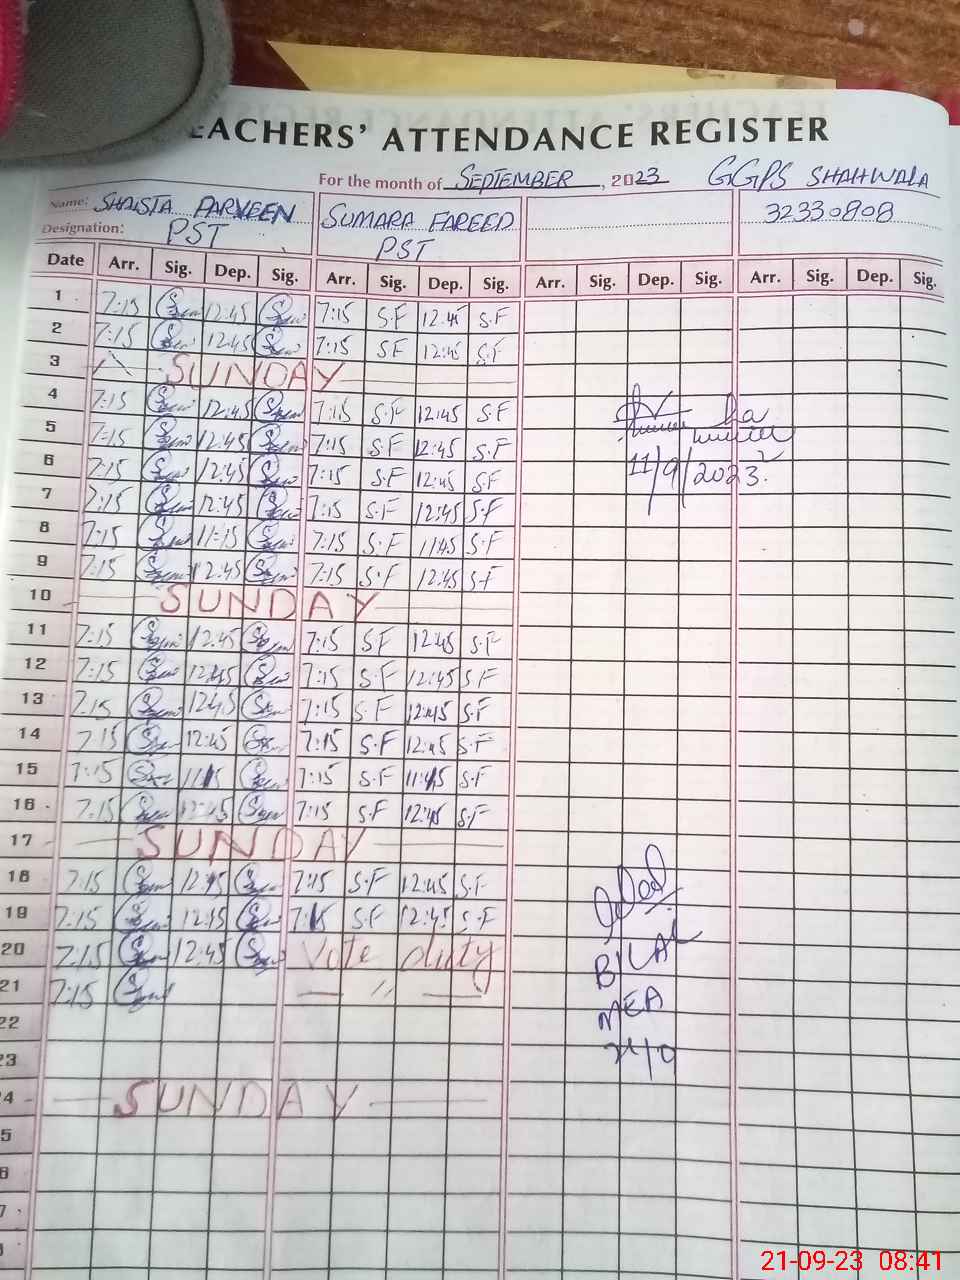 TEACHERS' ATTENDANCE REGISTER
For the month of SEPTEMBER, 2023 GGPS SHAHWALA
Name: SHAISTA PARVEEN SUMARA FAREED 32330808
Designation: PST PST
Date Arr. Sig. Dep. Sig. Arr. Sig. Dep. Sig. Arr. Sig. Dep. Sig. Arr. Sig. Dep. Sig.
1 7:15 12:45 7:15 S.F 12:45 S.F
2 7:15 12:45 7:15 S.F 12:45 S.F
3 SUNDAY
4 7:15 12:45 7:15 S.F 12:45 S.F
5 7:15 12:45 7:15 S.F 12:45 S.F
6 7:15 12:45 7:15 S.F 12:45 S.F
11/9/2023.
7 7:15 12:45 7:15 S.F 12:45 S.F
8 7:15 11:15 7:15 S.F 11:45 S.F
9 7:15 12:45 7:15 S.F 12:45 S.F
10 SUNDAY
11 7:15 12:45 7:15 S.F 12:45 S.F
12 7:15 12:45 7:15 S.F 12:45 S.F
13 7:15 12:45 7:15 S.F 12:45 S.F
14 7:15 12:45 7:15 S.F 12:45 S.F
15 7:15 11:15 7:15 S.F 11:45 S.F
16 7:15 12:45 7:15 S.F 12:45 S.F
17 SUNDAY
18 7:15 12:45 7:15 S.F 12:45 S.F
19 7:15 12:45 7:15 S.F 12:45 S.F
20 7:15 12:45 Vote duty
BILAL
21 7:15 — // —
MEA
22
23
4 SUNDAY
5
6
7
8
21-09-23 08:41